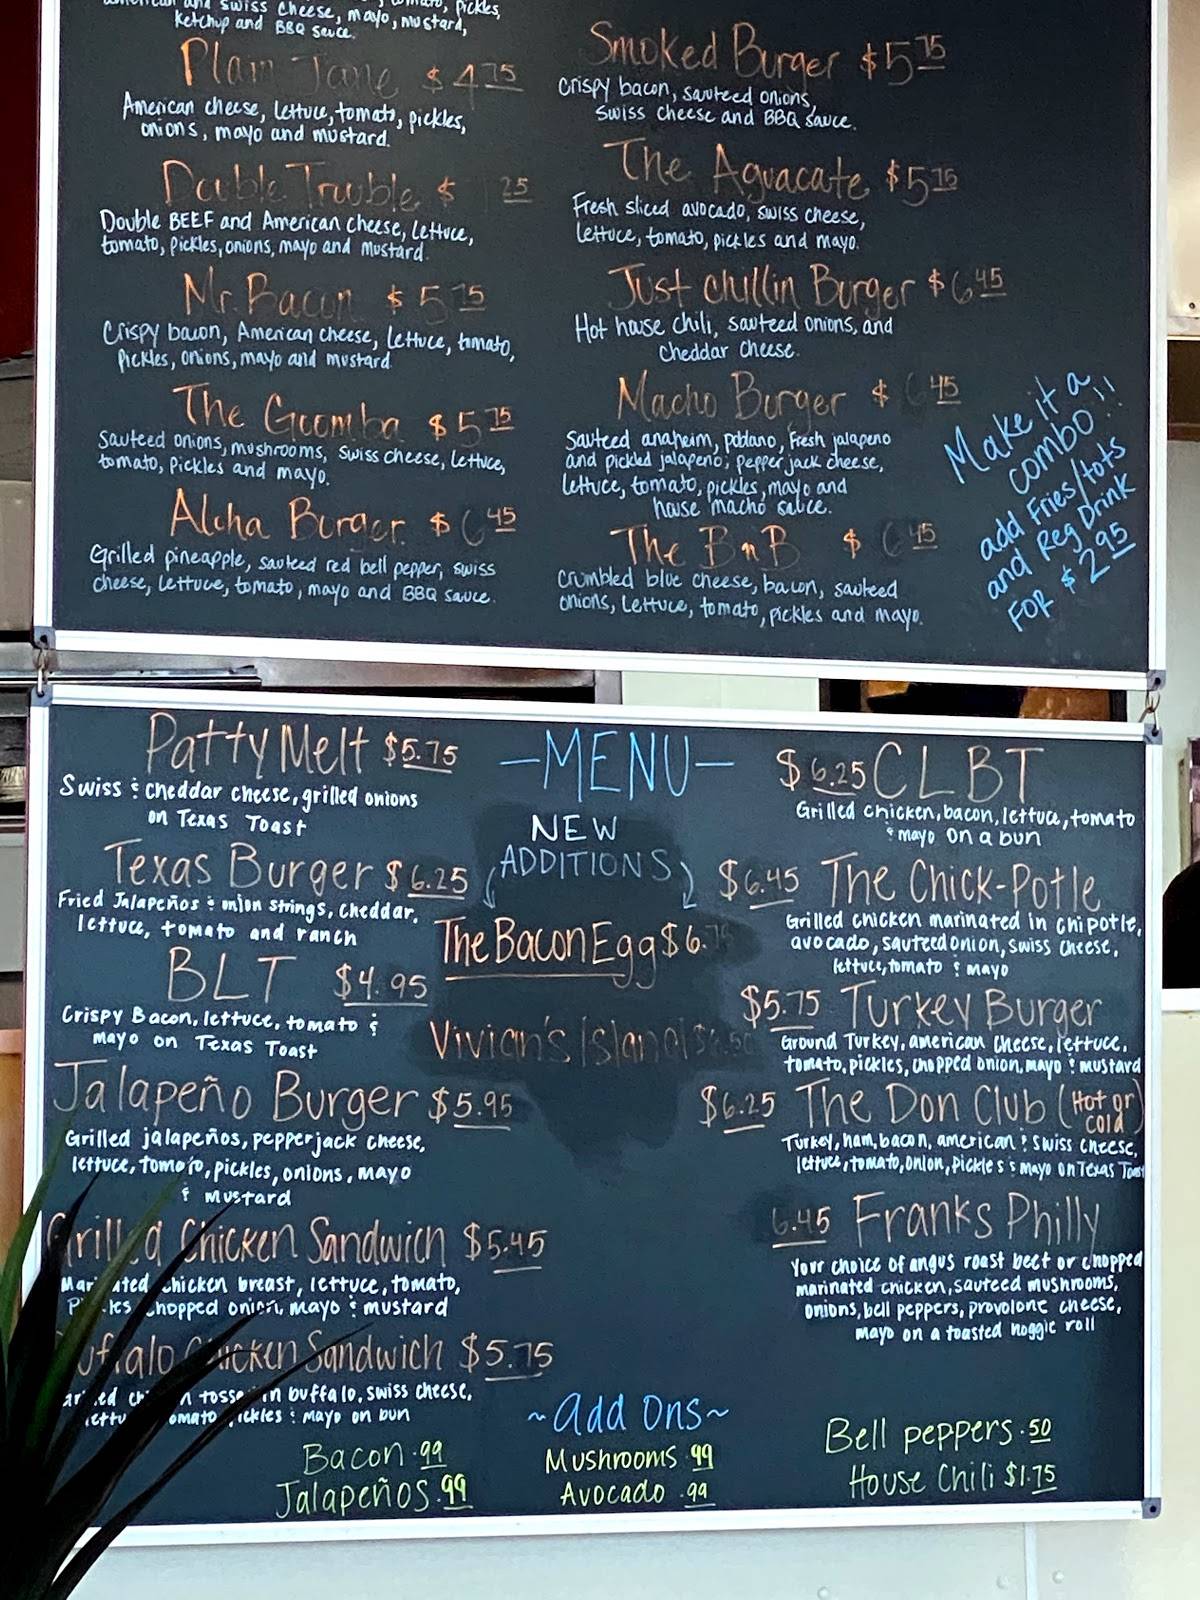 and Swiss cheese, mayo, mustard,
ketchup and BBQ sauce.
Plain Jane $4.75
American cheese, lettuce, tomato, pickles,
onions, mayo and mustard.
Double Trouble $ 25
Double BEEF and American cheese, lettuce,
tomato, pickles, onions, mayo and mustard.
Mr. Bacon $5.75
Crispy bacon, American cheese, lettuce, tomato,
Pickles, onions, mayo and mustard.
The Goomba $5.75
Sauteed onions, mushrooms, swiss cheese, lettuce,
tomato, pickles and mayo.
Aloha Burger $6.45
Grilled pineapple, sauteed red bell pepper, swiss
cheese, lettuce, tomato, mayo and BBQ sauce.
Smoked Burger $5.75
Crispy bacon, sauteed onions,
Swiss cheese and BBQ sauce.
The Aguacate $5.75
Fresh sliced avocado, swiss cheese,
lettuce, tomato, pickles and mayo.
Just chillin Burger $6.45
Hot house chili, sauteed onions, and
cheddar cheese.
Macho Burger $6.45
Sauteed anaheim, poblano, fresh jalapeno
and pickled jalapeno, pepper jack cheese,
lettuce, tomato, pickles, mayo and
house macho sauce.
The BnB $6.45
Crumbled blue cheese, bacon, sauteed
onions, lettuce, tomato, pickles and mayo.
Make it a
combo!!
add Fries/tots
and Reg Drink
FOR $2.95
Patty Melt $5.75
Swiss & cheddar cheese, grilled onions
on Texas Toast
Texas Burger $6.25
Fried Jalapeños & onion strings, cheddar,
lettuce, tomato and ranch
BLT $4.95
Crispy Bacon, lettuce, tomato &
mayo on Texas Toast
Jalapeño Burger $5.95
Grilled jalapeños, pepperjack cheese,
lettuce, tomato, pickles, onions, mayo
& mustard
Grilled Chicken Sandwich $5.45
Marinated chicken breast, lettuce, tomato,
Pickles chopped onion, mayo & mustard
Buffalo Chicken Sandwich $5.75
Grilled chicken tossed in buffalo, swiss cheese,
lettuce, tomato, pickles & mayo on bun
-MENU-
NEW
ADDITIONS
The Bacon Egg $6.75
Vivian's Island $6.50
$6.25 CLBT
Grilled chicken, bacon, lettuce, tomato
& mayo on a bun
$6.45 The Chick-Potle
Grilled chicken marinated in chipotle,
avocado, sauteed onion, swiss cheese,
lettuce, tomato & mayo
$5.75 Turkey Burger
Ground Turkey, american cheese, lettuce,
tomato, pickles, chopped onion, mayo & mustard
$6.25 The Don Club (Hot or
cold)
Turkey, ham, bacon, american & swiss cheese,
lettuce, tomato, onion, pickles & mayo on Texas Toast
6.45 Franks Philly
Your choice of angus roast beef or chopped
marinated chicken, sauteed mushrooms,
onions, bell peppers, provolone cheese,
mayo on a toasted hoggie roll
~Add Ons~
Bacon .99
Jalapeños .99
Mushrooms .99
Avocado .99
Bell peppers .50
House Chili $1.75